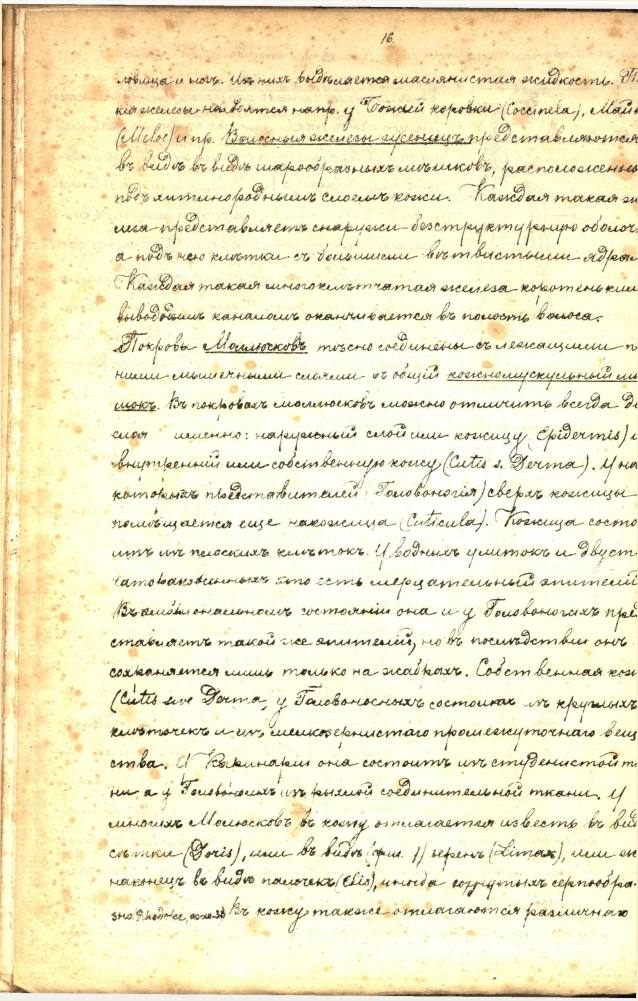 16.
ловища и ногъ. Изъ нихъ выдѣляется маслянистая жидкость. Та
кія железы находятся напр. у Божьей коровки (Coccinela), Май
(Meloe) и пр. Волосныя железы гусеницъ представляются
въ видѣ въ видѣ шарообразныхъ мѣшковъ, расположенны
подъ хитинороднымъ слоемъ кожи. Каждая такая же
леза представляетъ снаружи безструктурную оболоч
а подъ нею клѣтки съ большими вѣтвистыми ядра
Каждая такая многоклѣтчатая железа коротенькимъ
выводнымъ каналомъ оканчивается въ полость волоса.
Покровы Моллюсковъ тѣсно соединены съ лежащими п
ними мышечными слоями въ общій кожномускульный мѣ
шокъ. Въ покровахъ моллюсковъ можно отличить всегда д
слоя именно: наружный слой или кожицу (Epidermis) и
внутренній или собственную кожу (Cutis s. Derma). У нѣ
которыхъ представителей (Головоногія) сверхъ кожицы
помѣщается еще накожица (Cuticula). Кожица состо
итъ изъ плоскихъ клѣтокъ. У водныхъ улитокъ и двуст
это есть мерцательный эпителій
Въ состояніи она и у Головоногихъ пред
ставляетъ такой же эпителій, но въ послѣдствіи онъ
сохраняется лишь только на жабрахъ. Собственная кож
(Cutis sive Derma, у Головоносныхъ состоитъ изъ круглыхъ
клѣточекъ и изъ мелкозернистаго промежуточнаго вещ
ства. У Каринаріи она состоитъ изъ студенистой т
ни, а у Головоногихъ изъ рыхлой соединительной ткани. У
многихъ Молюсковъ въ кожу отлагается известь въ вид
сѣтки (Doris), или въ видѣ (фиг. 1) зеренъ (Limax), или же
наконецъ въ видѣ палочекъ, иногда согнутыхъ серпообра
зно. Въ кожу также отлагаются различнаго